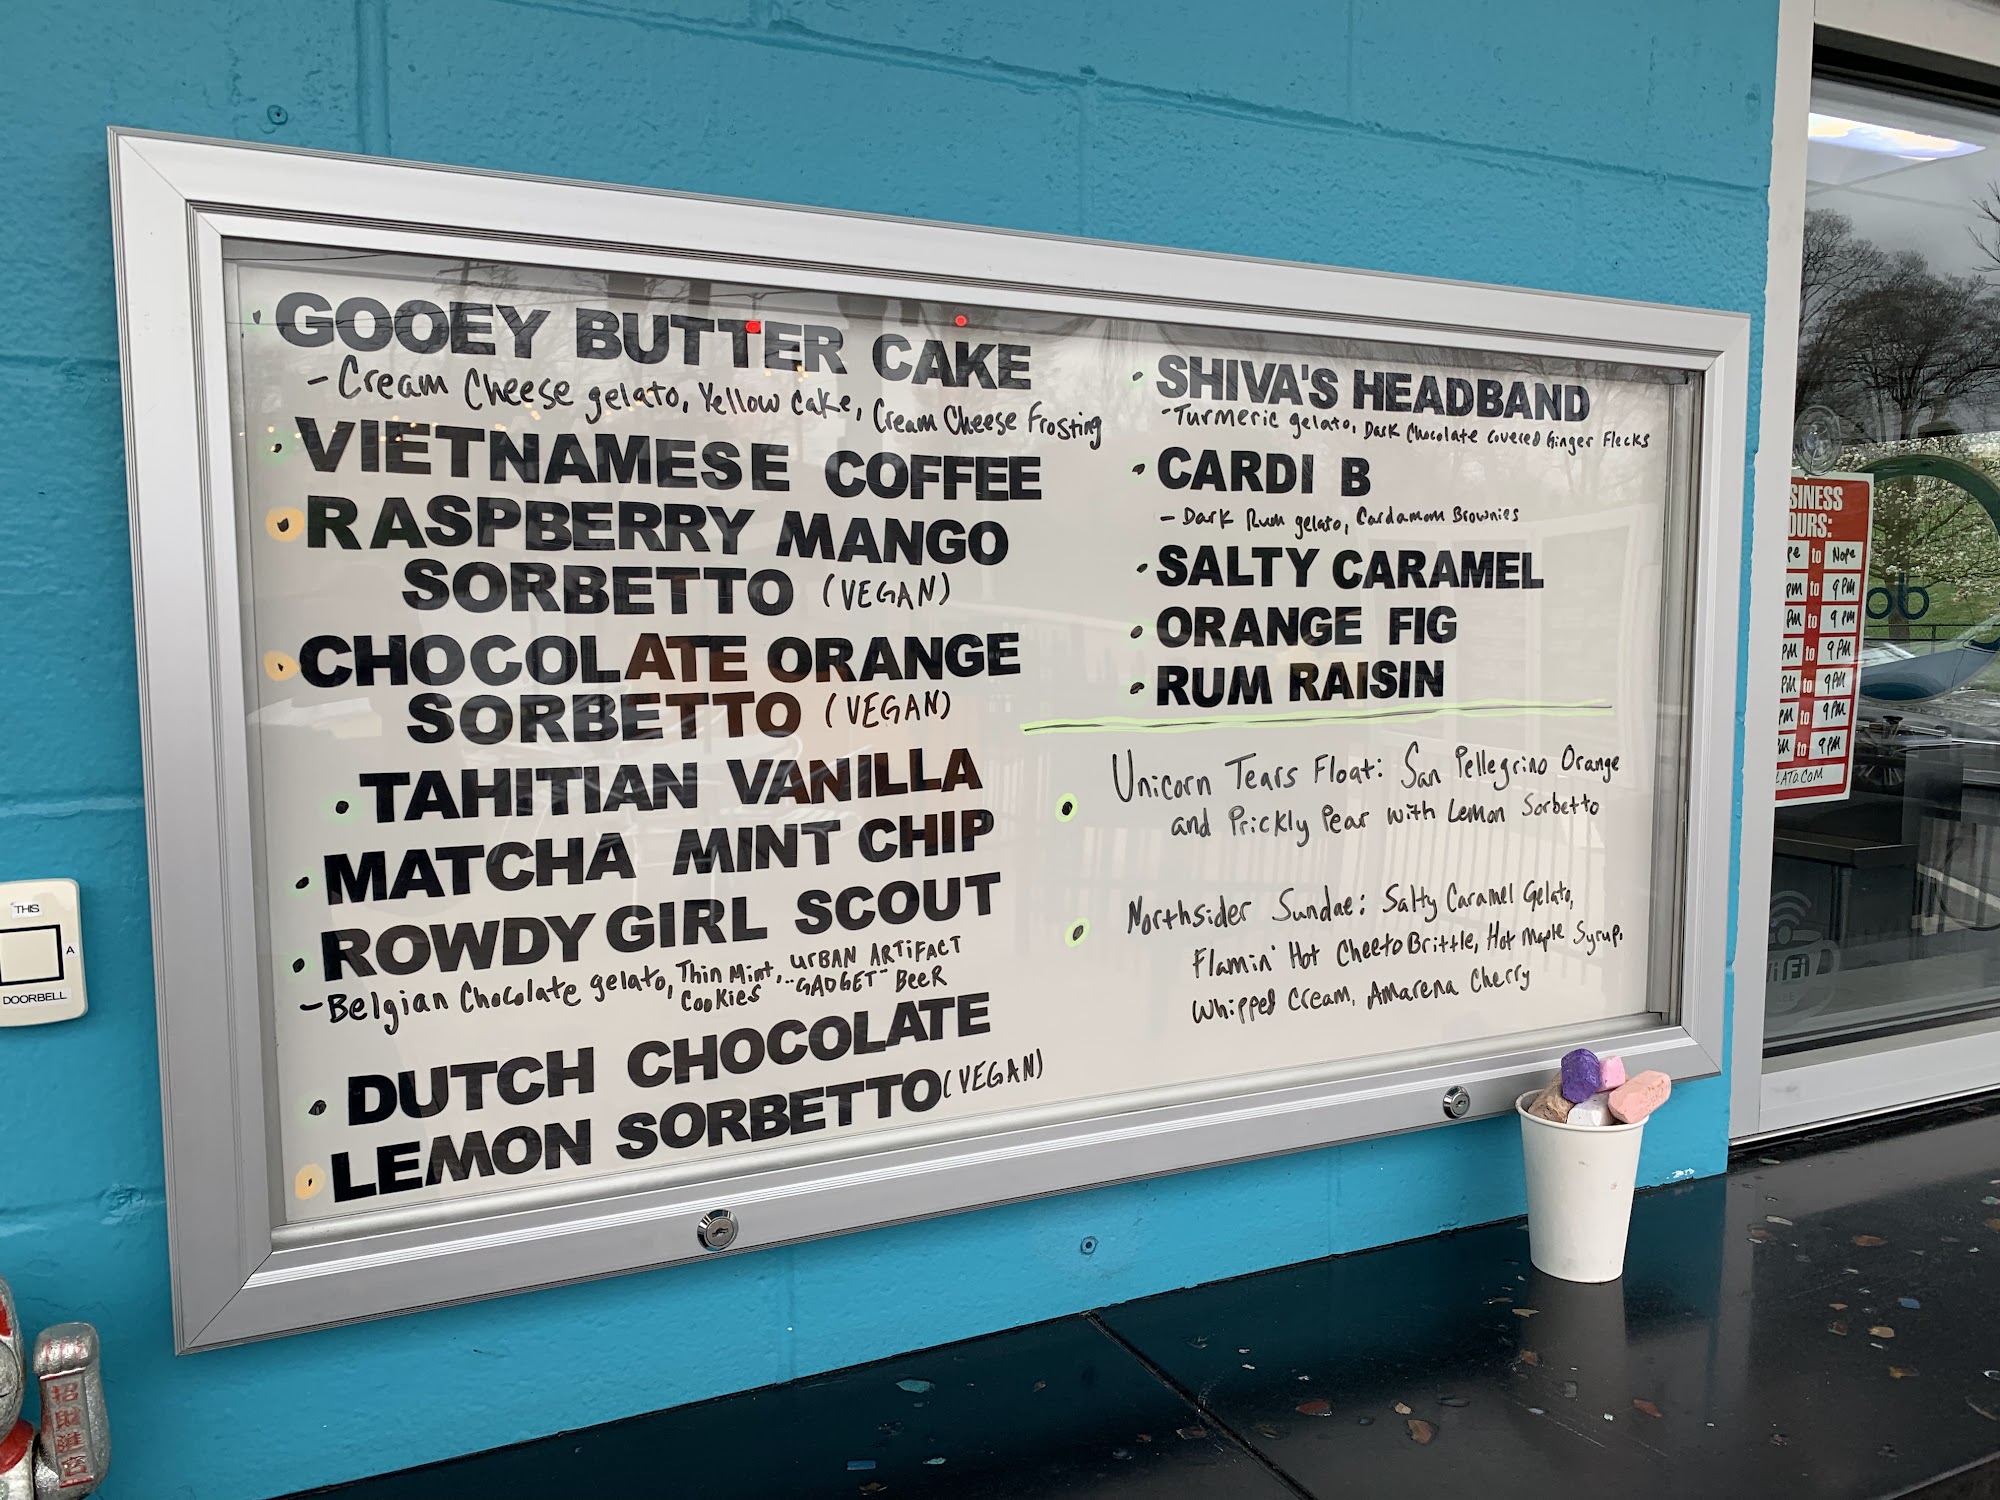 GOOEY BUTTER CAKE
- Cream Cheese gelato, Yellow Cake, Cream Cheese Frosting
VIETNAMESE COFFEE
RASPBERRY MANGO
SORBETTO (VEGAN)
CHOCOLATE ORANGE
SORBETTO (VEGAN)
TAHITIAN VANILLA
MATCHA MINT CHIP
ROWDY GIRL SCOUT
- Belgian Chocolate gelato, Thin Mint Cookies, URBAN ARTIFACT "GADGET" BEER
DUTCH CHOCOLATE
LEMON SORBETTO (VEGAN)
SHIVA'S HEADBAND
- Turmeric gelato, Dark Chocolate Covered Ginger Flecks
CARDI B
- Dark Rum gelato, Cardamom Brownies
SALTY CARAMEL
ORANGE FIG
RUM RAISIN
Unicorn Tears Float: San Pellegrino Orange
and Prickly Pear with Lemon Sorbetto
Northsider Sundae: Salty Caramel Gelato,
Flamin' Hot Cheeto Brittle, Hot Maple Syrup,
Whipped Cream, Amarena Cherry
to Nope
to 9 PM
to 9 PM
PM to 9 PM
PM to 9 PM
PM to 9 PM
to 9 PM
THIS
A
DOORBELL
招財進宝